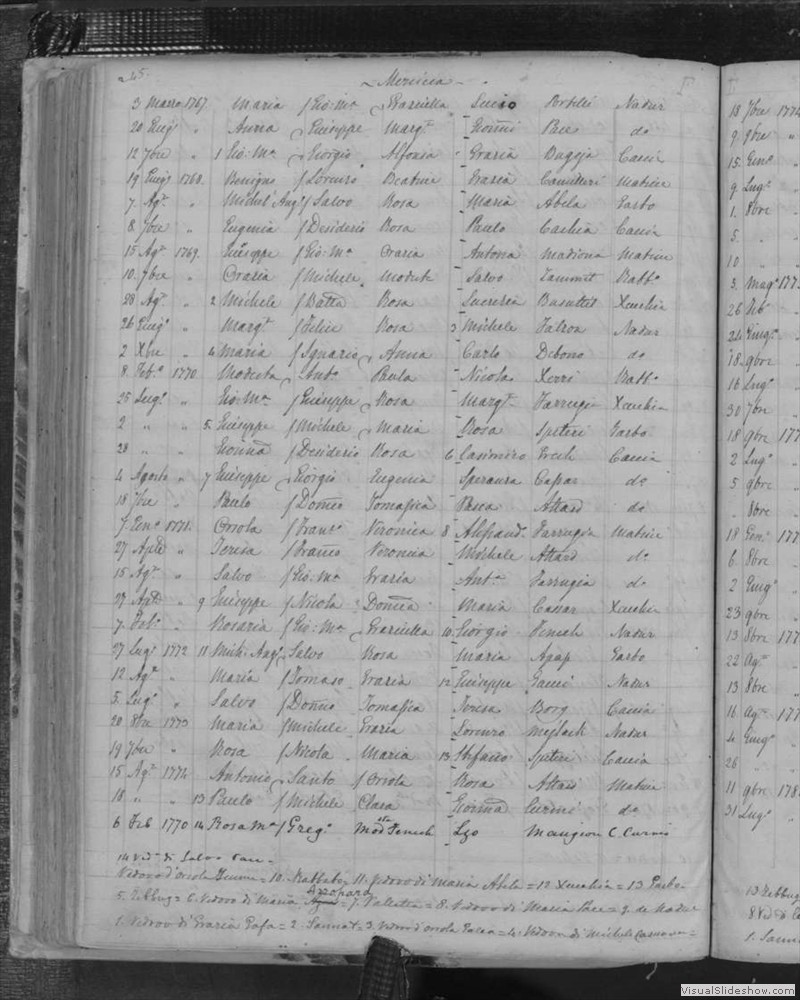 245.
~ Mercieca ~
3 Marzo 1767. Maria / Gio: Ma Graziella Lucio Portelli Nadur
20 Giug° " Anna Giuseppe Margta Gionni Pace do
12 7bre " 1 Gio: Ma Giorgio Alfonsa Grazia Bugeja Caccia
19 Giug° 1768. Benigno / Lorenzo Beatrice Grazia Camilleri Matrice
7. Agto " Michel' Ang° / Salvo Rosa Maria Abela Garbo
8 7bre " Eugenia / Desiderio Rosa Paulo Cachia Caccia
15 Agto 1769. Giuseppe / Gio: Ma Grazia Antona Madiona Matrice
10. 7bre " Grazia / Michele Modesta Salvo Zammit Rabbo
28 Agto " 2 Michele / Batta Rosa Lucrezia Busuttil Xeuchia
26 Giug° " Margta / Felice Rosa 3 Michele Falzon Nadur
2 Xbre " 4 Maria / Ignazio Anna Carlo Debono do
8. Feb° 1770 Modesta Anto Paula Nicolas Xerri Rabbo
25 Lug° " Gio: Ma / Giuseppe Rosa Margta Farrugia Xeuchia
2 " " 5 Giuseppe / Michele Maria Rosa Spiteri Garbo
28 " Gionna / Desiderio Rosa 6 Casimiro Caccia
4 Agosto " 7 Giuseppe Giorgio Eugenia Speranza Caspar do
18 7bre " Paulo / Domco Tomasina Pasca Attard do
7 Gen° 1771. Orsola / Franco Veronica 8 Alessand. Farrugia Matrice
27 Aple " Teresa / Franco Veronica Michele Attard do
15 Agto " Salvo / Gio: Ma Grazia Anta Farrugia do
27 Agto " 9 Giuseppe / Nicola Domca Maria Cassar Xeuchia
7. Feb° " Rosaria / Gio: Ma Graziella 10 Giorgio Tenich Nadur
27 Lug° 1772 11 Mich: Ang° Salvo Rosa Maria Agap Garbo
12 Agto " Maria / Tomaso Grazia 12 Giuseppe Gauci Nadur
5. Lug° " Salvo / Domco Tomasina Teresa Borg Caccia
20 8bre 1773 Maria / Michele Grazia Lorenzo Mejlach Nadur
19 7bre " Rosa / Nicola Maria 13 Stefano Spiteri Caccia
15 Agto 1774 Antonio Santo / Orsola Rosa Attard Matrice
18 " " 13 Paulo / Michele Clara Gionna Curmi do
6 Feb 1770 14 Rosa Ma / Greg° Modsta Tenich Lzo Mangion C. Curmi
14 Vedo di Salvo
Vedovo d'orsola = 10. Rabbato = 11. Vedovo di Maria Abela = 12 Xeuchia = 13 Garbo
5. Zebbug = 6 Vedovo di Maria Azzopard = 7. Valletta = 8. Vedovo di Maria Pace = 9. da Nadur
1. Vedovo di Grazia = 2. Sannat = 3. Vedovo d'orsola = 4. Vedovo di Michele =
18 7bre 1774
9 9bre "
15. Gen°
9 Lug°
1. 8bre
5. "
10 "
3. Mag° 177
26 Feb°
24 Giug°
18. 9bre
16 Lug°
30 7bre
18 9bre 177
2 Lug°
5 9bre
8bre
18 Gen° 177
6. 8bre
2 Giug°
23 9bre
13 8bre 177
22 Agto
13 8bre
16 Agto 177
4 Giug°
26 "
11 9bre 178
31 Lug°
13 Zebbug
8 Vedo di
1. Sanna
VisualSlideshow.com